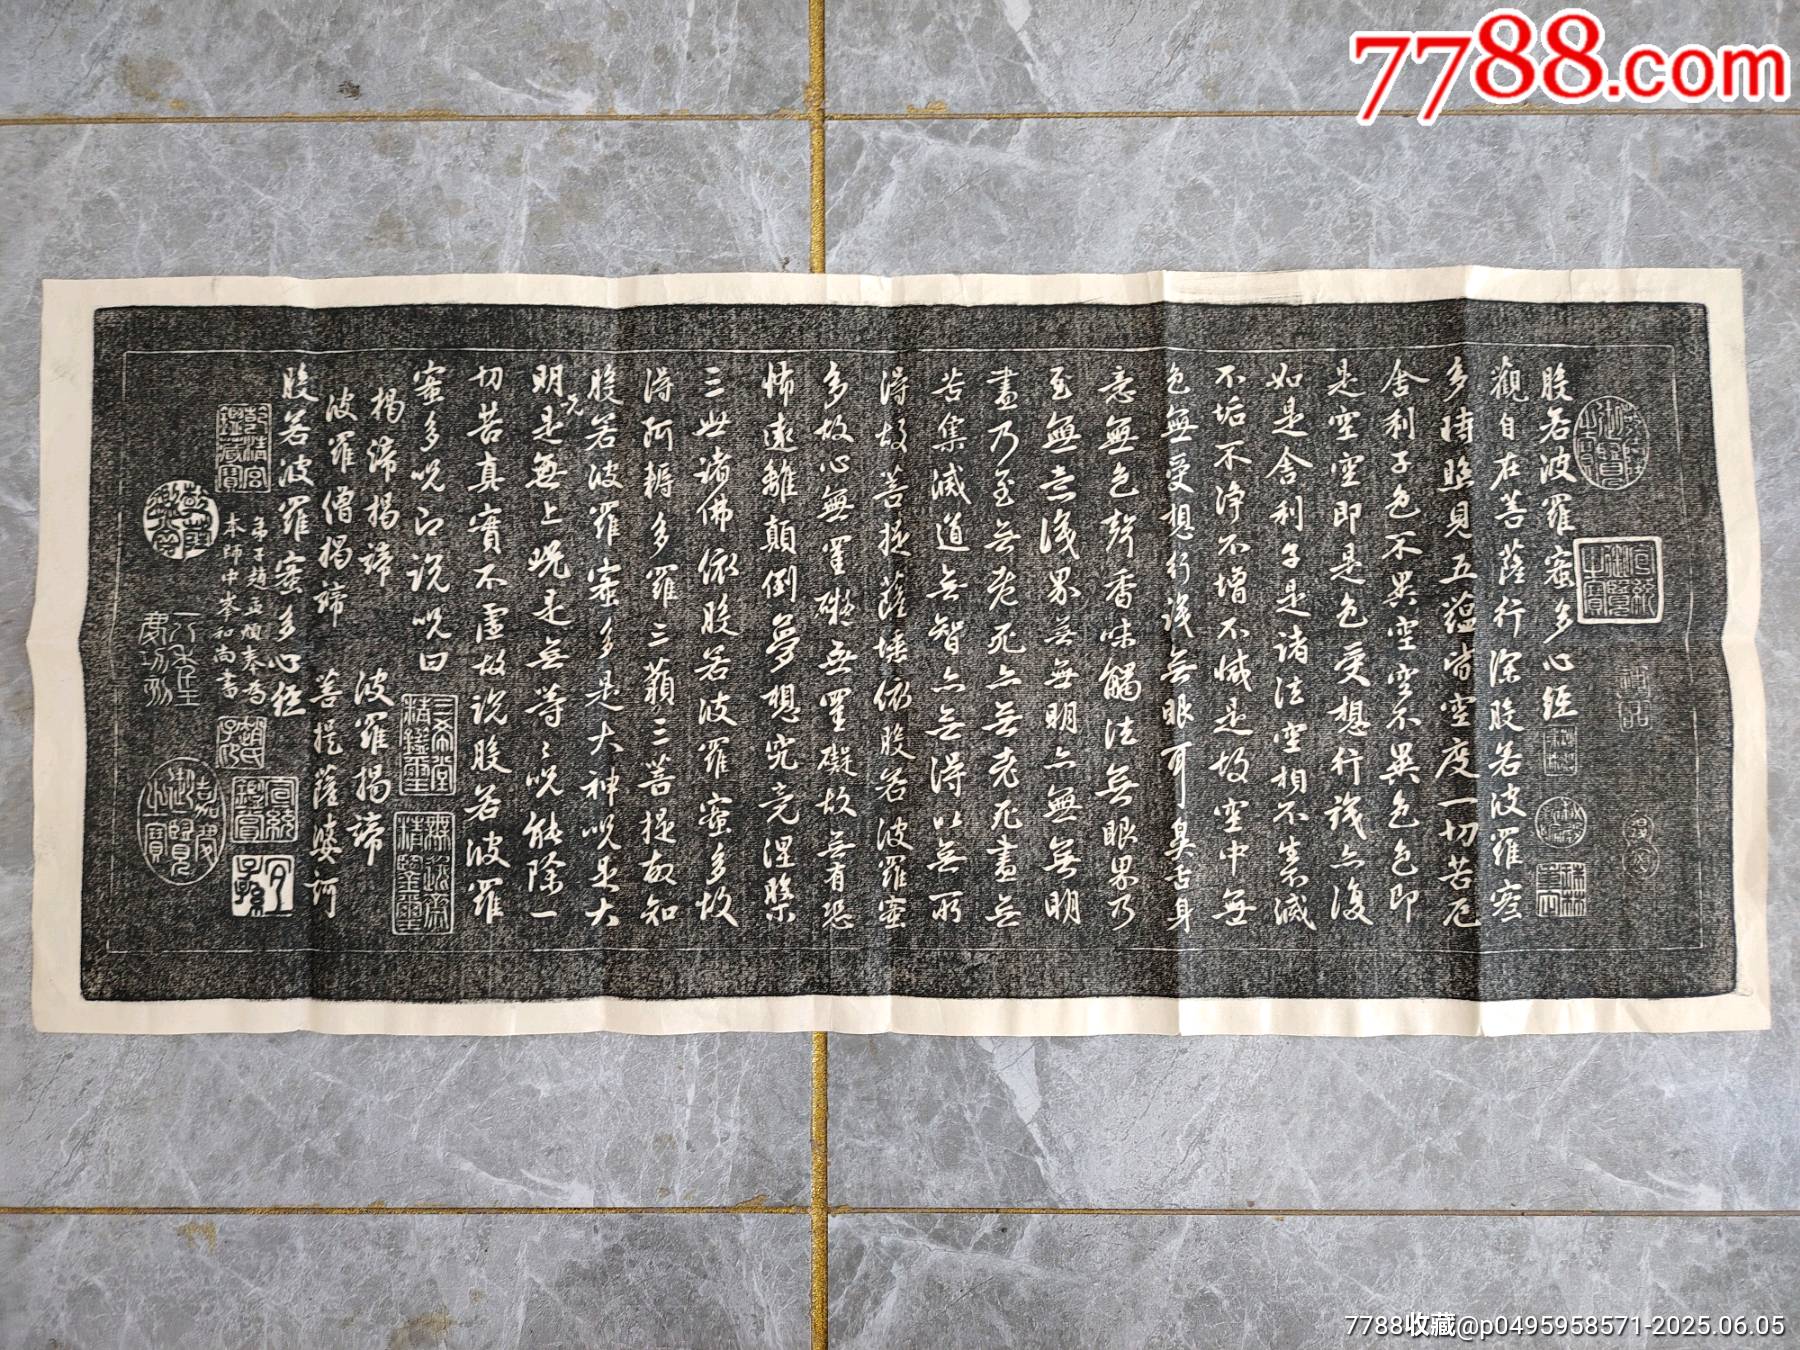 7788.com
般若波羅蜜多心經
觀自在菩薩行深般若波羅蜜
多時照見五蘊皆空度一切苦厄
舍利子色不異空空不異色色即
是空空即是色受想行識亦復
如是舍利子是諸法空相不生不滅
不垢不淨不增不減是故空中無
色無受想行識無眼耳鼻舌身
意無色聲香味觸法無眼界乃
至無意識界無無明亦無無明
盡乃至無老死亦無老死盡無
苦集滅道無智亦無得以無所
得故菩提薩埵依般若波羅蜜
多故心無罣礙無罣礙故無有恐
怖遠離顛倒夢想究竟涅槃
三世諸佛依般若波羅蜜多故
得阿耨多羅三藐三菩提故知
般若波羅蜜多是大神呪是大
明呪是無上呪是無等等呪能除一
切苦真實不虛故說般若波羅
蜜多呪即說呪曰
揭諦揭諦 波羅揭諦
波羅僧揭諦 菩提薩婆訶
般若波羅蜜多心經
弟子趙孟頫奉為
本師中峯和尚書
嘉慶御覽之寶
宣統鑒賞
三希堂精鑒璽
宜子孫
乾清宮鑒藏寶
趙氏子昂
神品
7788收藏@p0495958571-2025.06.05